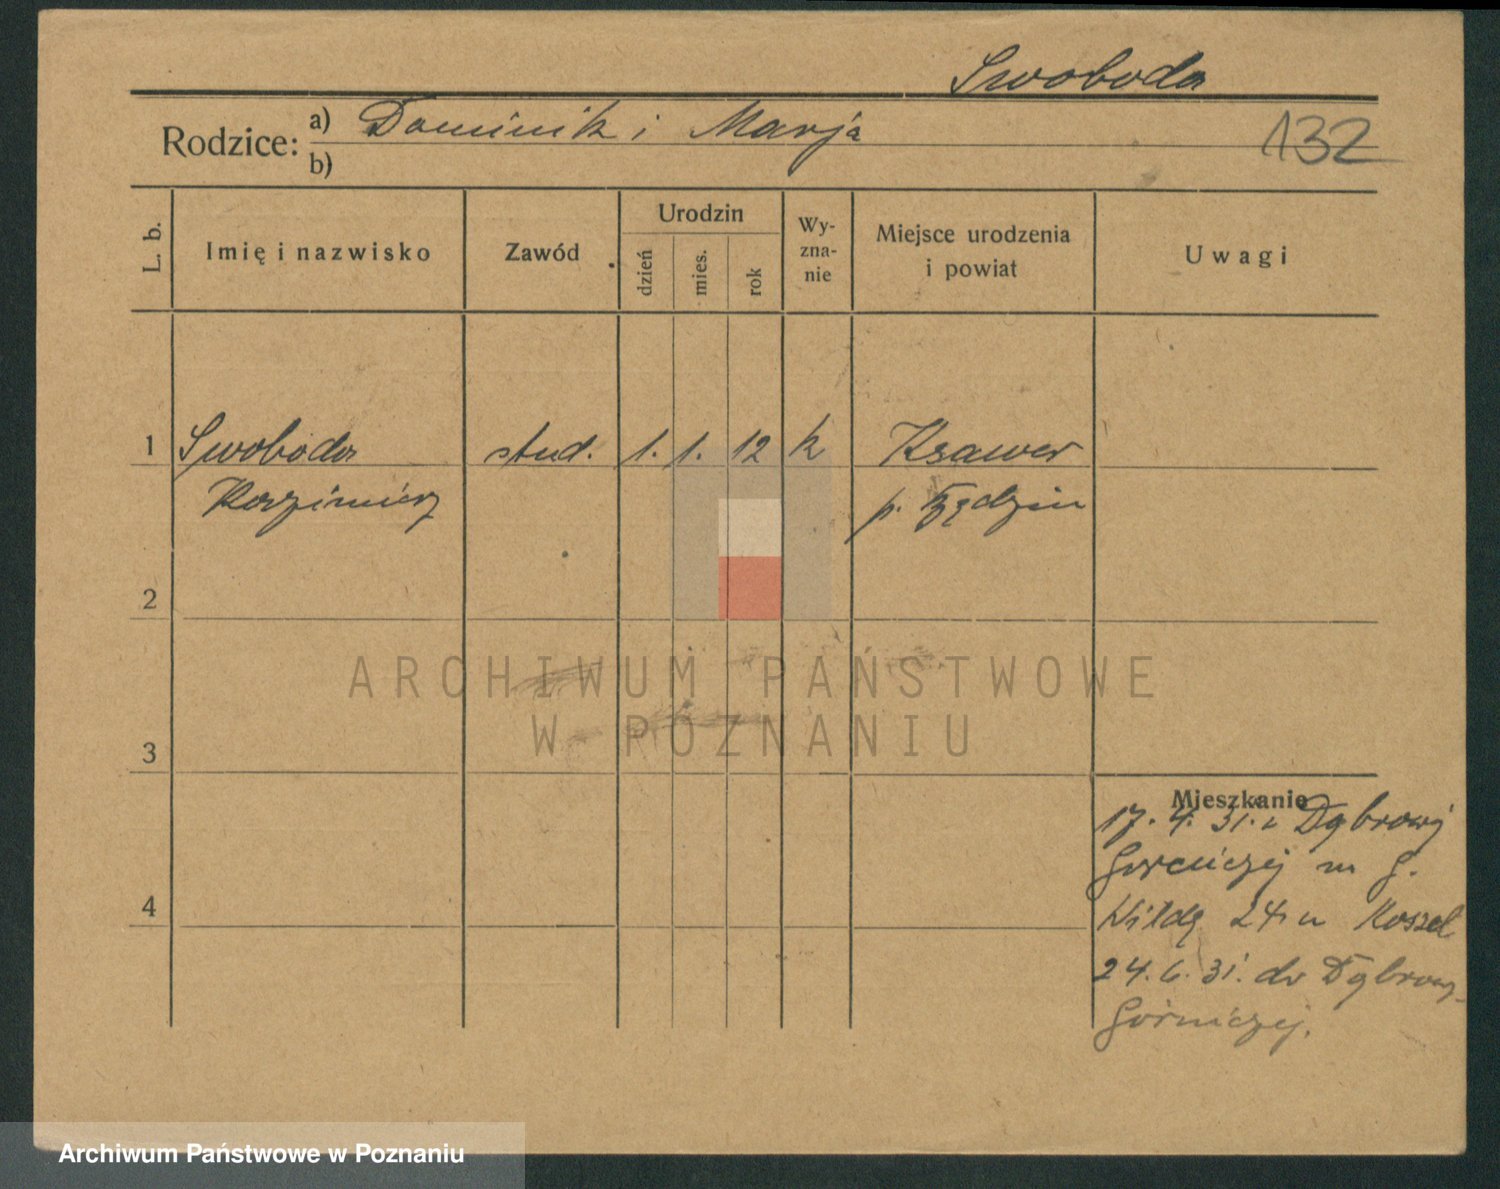 Swoboda
Rodzice: a) Dominik i Marja
132
b)
L. b.
Imię i nazwisko
Zawód
Urodzin
dzień
mies.
rok
Wy-
zna-
nie
Miejsce urodzenia
i powiat
Uwagi
1 Swoboda stud. 1. 1. 12 k Ksawer
Kazimierz p. Będzin
2
ARCHIWUM PAŃSTWOWE
W POZNANIU
3
Mieszkanie
17. 4. 31. z Dąbrowy
Górniczej na G.
Wildę 24 u Koszel
4
24. 6. 31. do Dąbrowy
Górniczej.
Archiwum Państwowe w Poznaniu